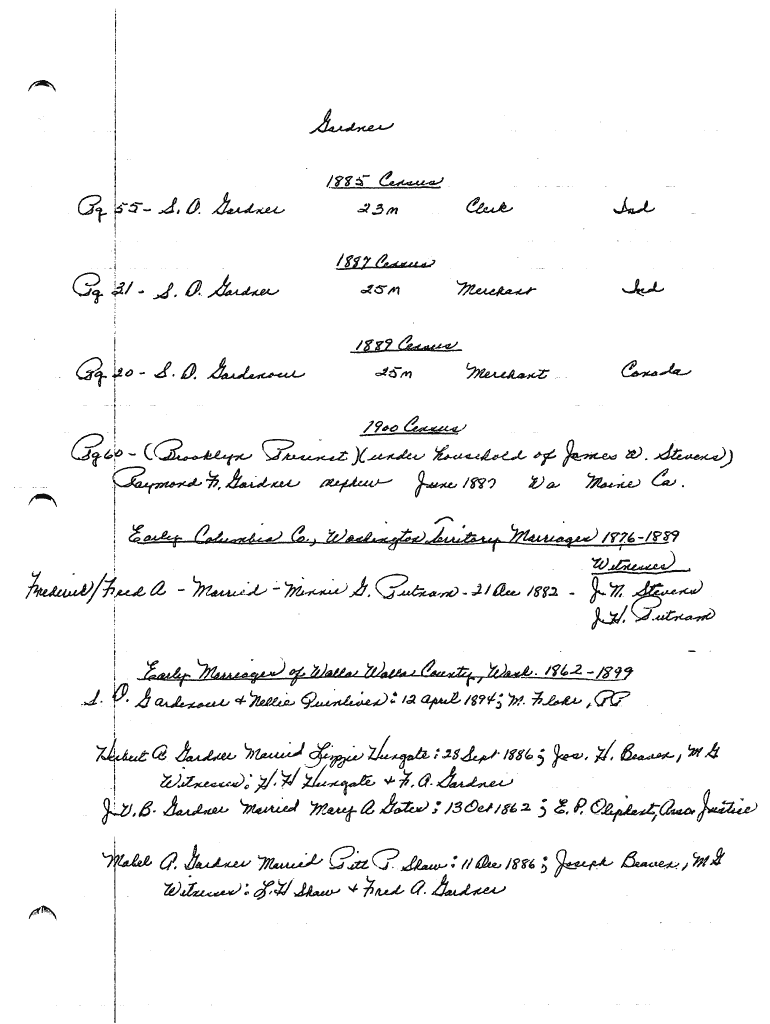 Gardner
1885 Census
Pg 55 - S. D. Gardner 23m Clerk Ind
1887 Census
Pg 21 - S. D. Gardner 25m Merchant Ind
1889 Census
Pg 20 - S. D. Gardenour 25m Merchant Canada
1900 Census
Pg 60 - (Brooklyn Precinct) (under household of James W. Stevens)
Raymond F. Gardner nephew June 1887 Wa Maine Ca.
Early Columbia Co., Washington Territory Marriages 1876-1889
Witnesses
Frederick/Fred A - Married - Minnie G. Putnam - 21 Dec 1882 - J. N. Stevens
J. H. Putnam
Early Marriages of Walla Walla County, Wash. 1862-1899
S. D. Gardenour & Nellie Quinliven: 12 April 1894; M. Flohr, PP
Herbert A Gardner Married Lizzie Hungate: 28 Sept 1886; Jos. H. Beaven, M G
Witnesses: H. H Hungate & F. A. Gardner
J. V. B. Gardner Married Mary A Gates; 13 Oct 1862; E. P. Oliphant, Justice
Mabel A. Gardner Married Pitt P. Shaw: 11 Dec 1886; Joseph Beaven, M G
Witnesses: L. H Shaw & Fred A. Gardner